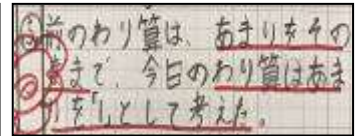 前のわり算は、あまりをその
まで、今日のわり算はあま
りを1として考えた。